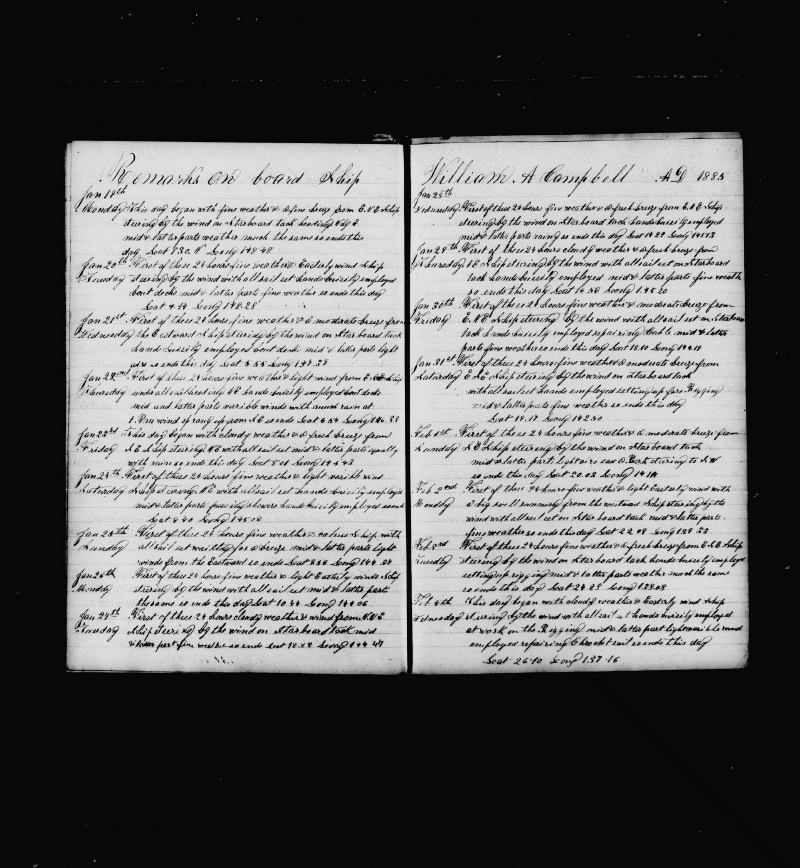 Remarks on board Ship
Jan 19th
Monday This day began with fine weather & a fine breeze from E N E Ship
steering by the wind on Starboard tack heading
mid & latter parts weather much the same so ends this
day Long 148.48
Jan 20th First of these 24 hours fine weather & Easterly wind Ship
Tuesday steering by the wind with all sail set hands buisily employed
bout decks mid & latter parts fine weather so ends this day
Lat 4.44 Long 148.28
Jan 21st First of these 24 hours fine weather & a moderate breeze from
Wednesday the Eastward Ship steering by the wind on Starboard tack
hands buisily employed bout deck mid & latter parts light
airs so ends Lat 5.55 Long 147.37
Jan 22nd First of these 24 hours fine weather & light wind from Ship
Thursday under all sail heading hands buisily employed bout decks
mid and latter parts variable winds with much rain at
1 P.m wind sprang up from so ends Lat 6.54 Long
Jan 23rd This day began with cloudy weather & a fresh breeze from
Friday Ship steering with all sail set mid & latter parts squally
with rain so ends this day Lat 8.01 Long 145.43
Jan 24th First of these 24 hours fine weather & light varible wind
Saturday Ship steering with all sail set hands buisily employed
mid & latter parts passing showers hands buisily employed
Lat 8.40 Long 145.06
Jan 25th First of these 24 hours fine weather & calms Ship with
Sunday all sail set waiting for a breeze mid & latter parts light
winds from the Eastward so ends Lat 8.58 Long 144.54
Jan 26th First of these 24 hours fine weather & light Easterly winds Ship
Monday steering by the wind with all sail set mid & latter parts
the same so ends the day Lat 10.44 Long 144.06
Jan 27th First of these 24 hours cloudy weather & wind from
Tuesday Ship steering by the wind on Starboard tack mid
& latter part fine weather so ends Lat 12.12 Long
William A Campbell A D 1885
Jan 28th
Wednesday First of these 24 hours fine weather & a fresh breeze from E N E Ship
steering by the wind on Starboard tack hands buisily employed
mid & latter parts rainy so ends this day Lat 14.22 Long
Jan 29th First of these 24 hours cloudy weather & a fresh breeze from
Thursday Ship steering by the wind with all sail set on Starboard
tack hands buisily employed mid & latter parts fine weath
so ends this day Lat 16.28 Long 145.20
Jan 30th First of these 24 hours fine weather & moderate breeze from
Friday E N E Ship steering by the wind with all sail set on Starboard
tack hands buisily employed repairing Cable mid & latter
parts fine weather so ends this day Lat 18.10 Long
Jan 31st First of these 24 hours fine weather & moderate breeze from
Saturday Ship steering by the wind on Starboard tack
with all sail set hands employed setting up fore Rigging
mid & latter parts fine weather so ends this day
Lat Long 142.50
Feb 1st First of these 24 hours fine weather & a moderate breeze from
Sunday Ship steering by the wind on Starboard tack
mid & latter part light airs saw a Bark steering to
so ends the day Lat 20.08 Long
Feb 2nd First of these 24 hours fine weather & light Easterly wind with
Monday a big swell running from the westward Ship steering by the
wind with all sail set on Starboard tack mid & latter parts
fine weather so ends this day Lat 22.08 Long 139.22
Feb 3rd First of these 24 hours fine weather & a fresh breeze from E N E Ship
Tuesday steering by the wind on Starboard tack hands buisily employed
setting up rigging mid & latter parts weather much the same
so ends this day Lat 24.23 Long
Feb 4th This day began with cloudy weather & Easterly wind Ship
Wednesday steering by the wind with all sail set hands buisily employed
at work on the Rigging mid & latter part light varible wind
employed repairing sail so ends this day
Lat 26.10 Long 137.16